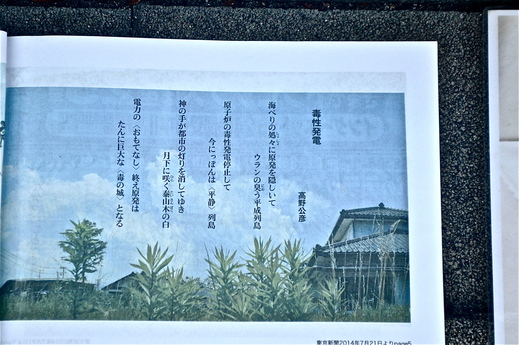 毒性発電
高野公彦
海べりの処々に原発を隠しいて
ウランの臭う平成列島
原子炉の毒性発電停止して
今にっぽんは〈平静〉列島
神の手が都市の灯りを消してゆき
月下に咲く泰山木の白
電力の〈おもてなし〉終え原発は
たんに巨大な〈毒の城〉となる
東京新聞2014年7月21日よりpage5